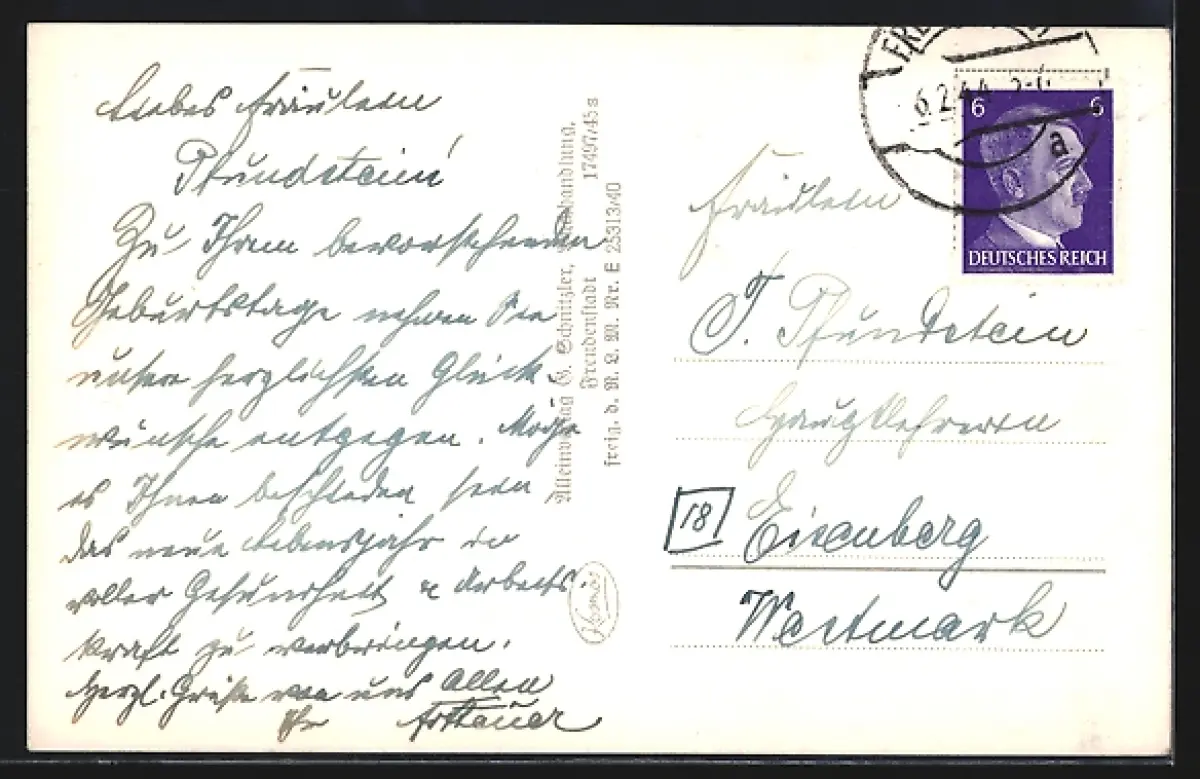 Liebes Fräulein
Pfundstein!
Zu Ihrem bevorstehenden
Geburtstage nehmen Sie
unsere herzlichsten Glück-
wünsche entgegen. Möge
es Ihnen beschieden sein
das neue Lebensjahr in
voller Gesundheit & Arbeits-
kraft zu verbringen.
Herzl. Grüße von uns Allen
Ihr
Alleinverlag G. Schnitzler, Buchhandlung,
Freudenstadt 17497/45 s
freig. d. R. L. M. Nr. E 25313/40
6.2.44
a
6 6
DEUTSCHES REICH
Fräulein
T. Pfundstein
Hauptlehrerin
18
Eisenberg
Westmark